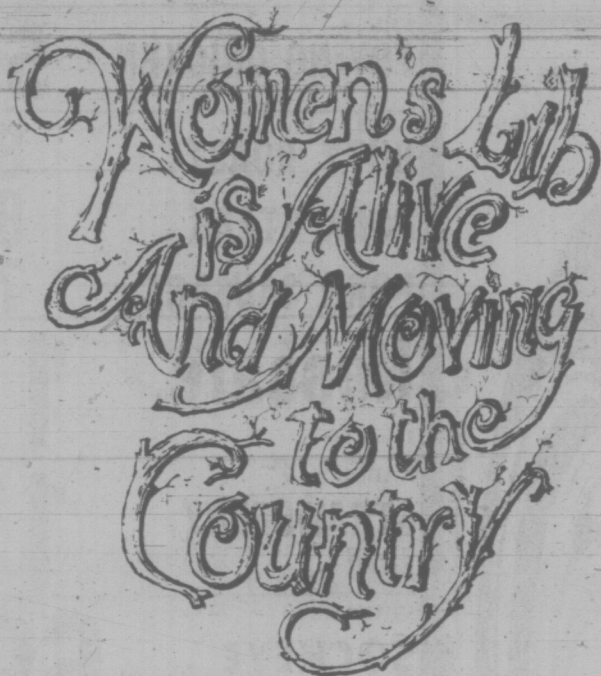 Women's Lib
is Alive
And Moving
to the
Country